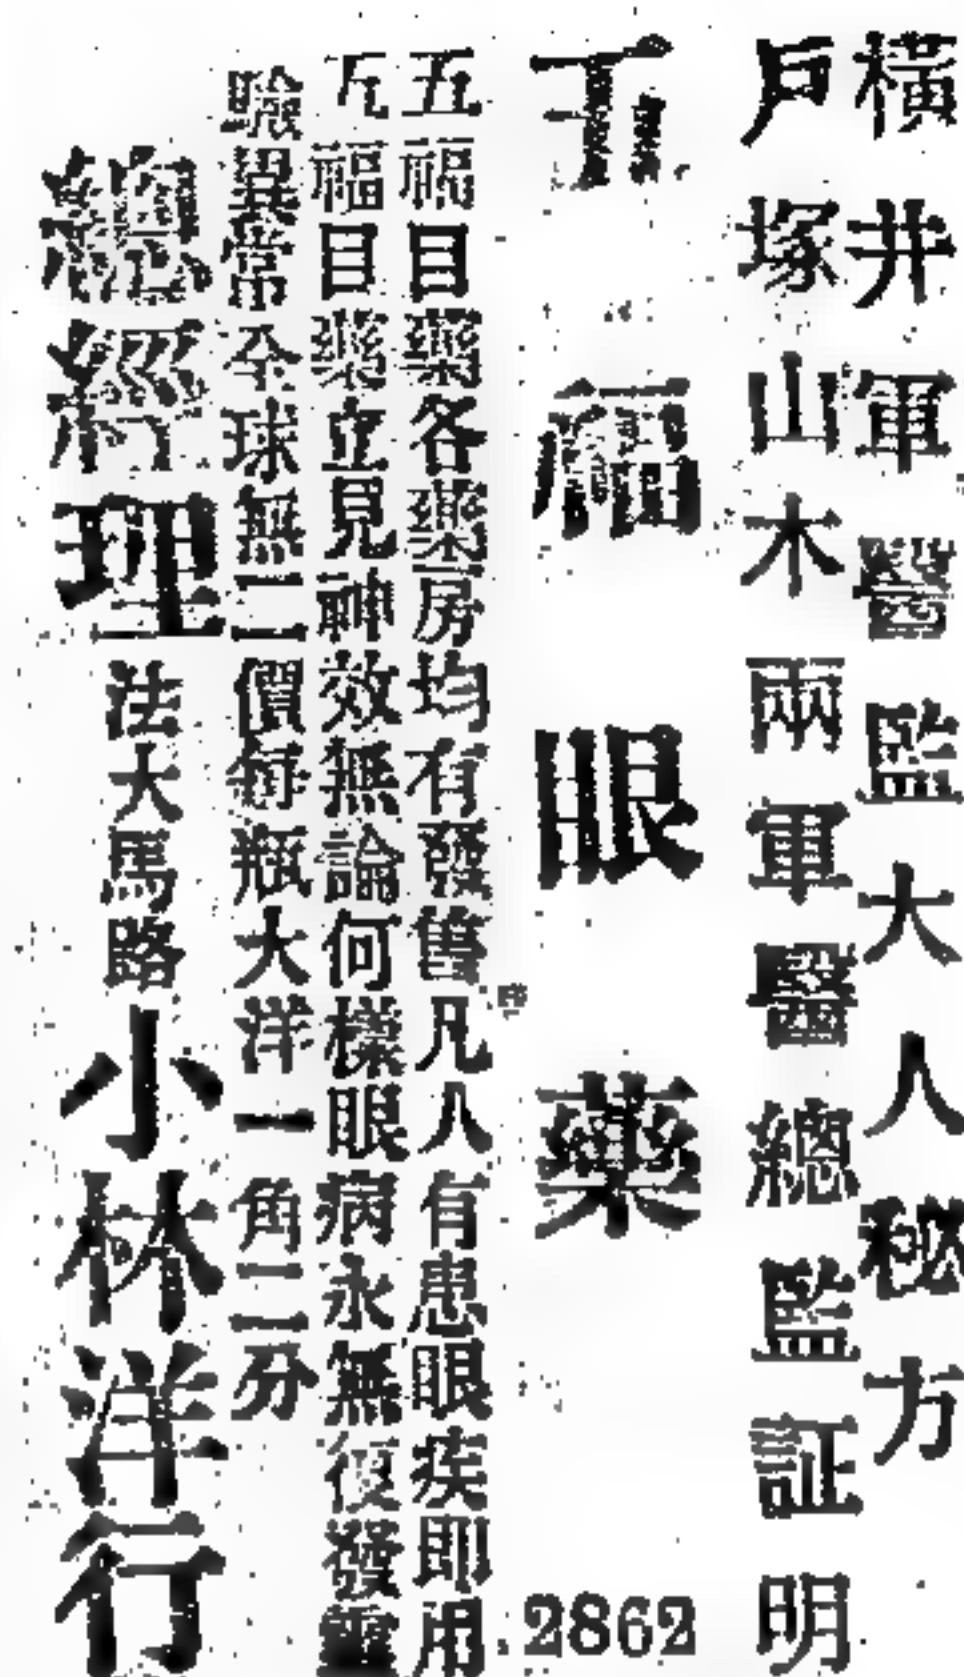 橫井軍醫監大人秘方
戶塚山木兩軍醫總監証明
五福眼藥
2862
五福目藥各藥房均有發售凡人有患眼疾即用
五福目藥立見神效無論何樣眼病永無復發靈
驗異常全球無二價每瓶大洋一角二分
總經理法大馬路小林洋行